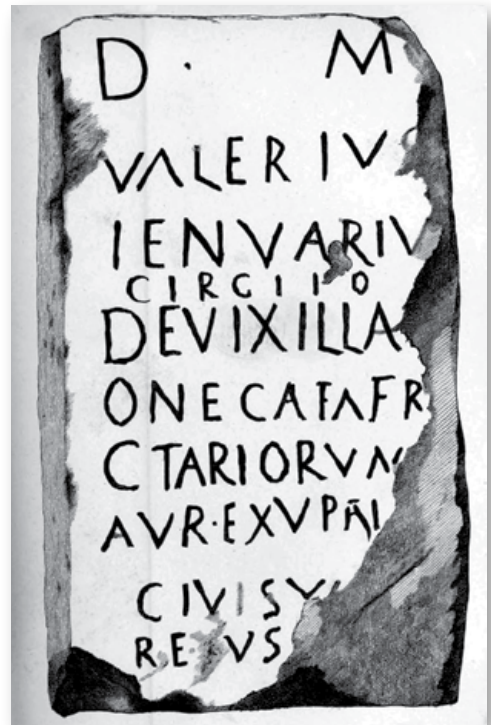 D · M
VALERIV
IENVARIV
CIRCIIO
DEVIXILLA
ONECATAFR
CTARIORVM
AVR·EXVPRI
CIVISV